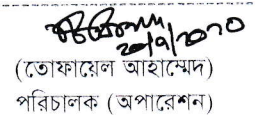 ২০/৯/২০২০
(তোফায়েল আহাম্মেদ)
পরিচালক (অপারেশন)